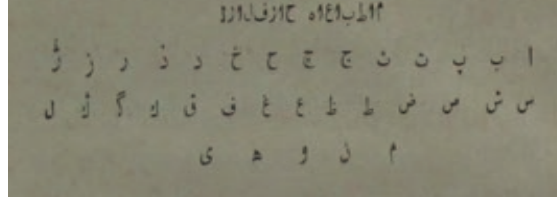 ا ب پ ت ث ج چ ح خ د ذ ر ز ژ
س ش ص ض ط ظ ع غ ف ق ك گ ڭ ل
م ن و ه ی